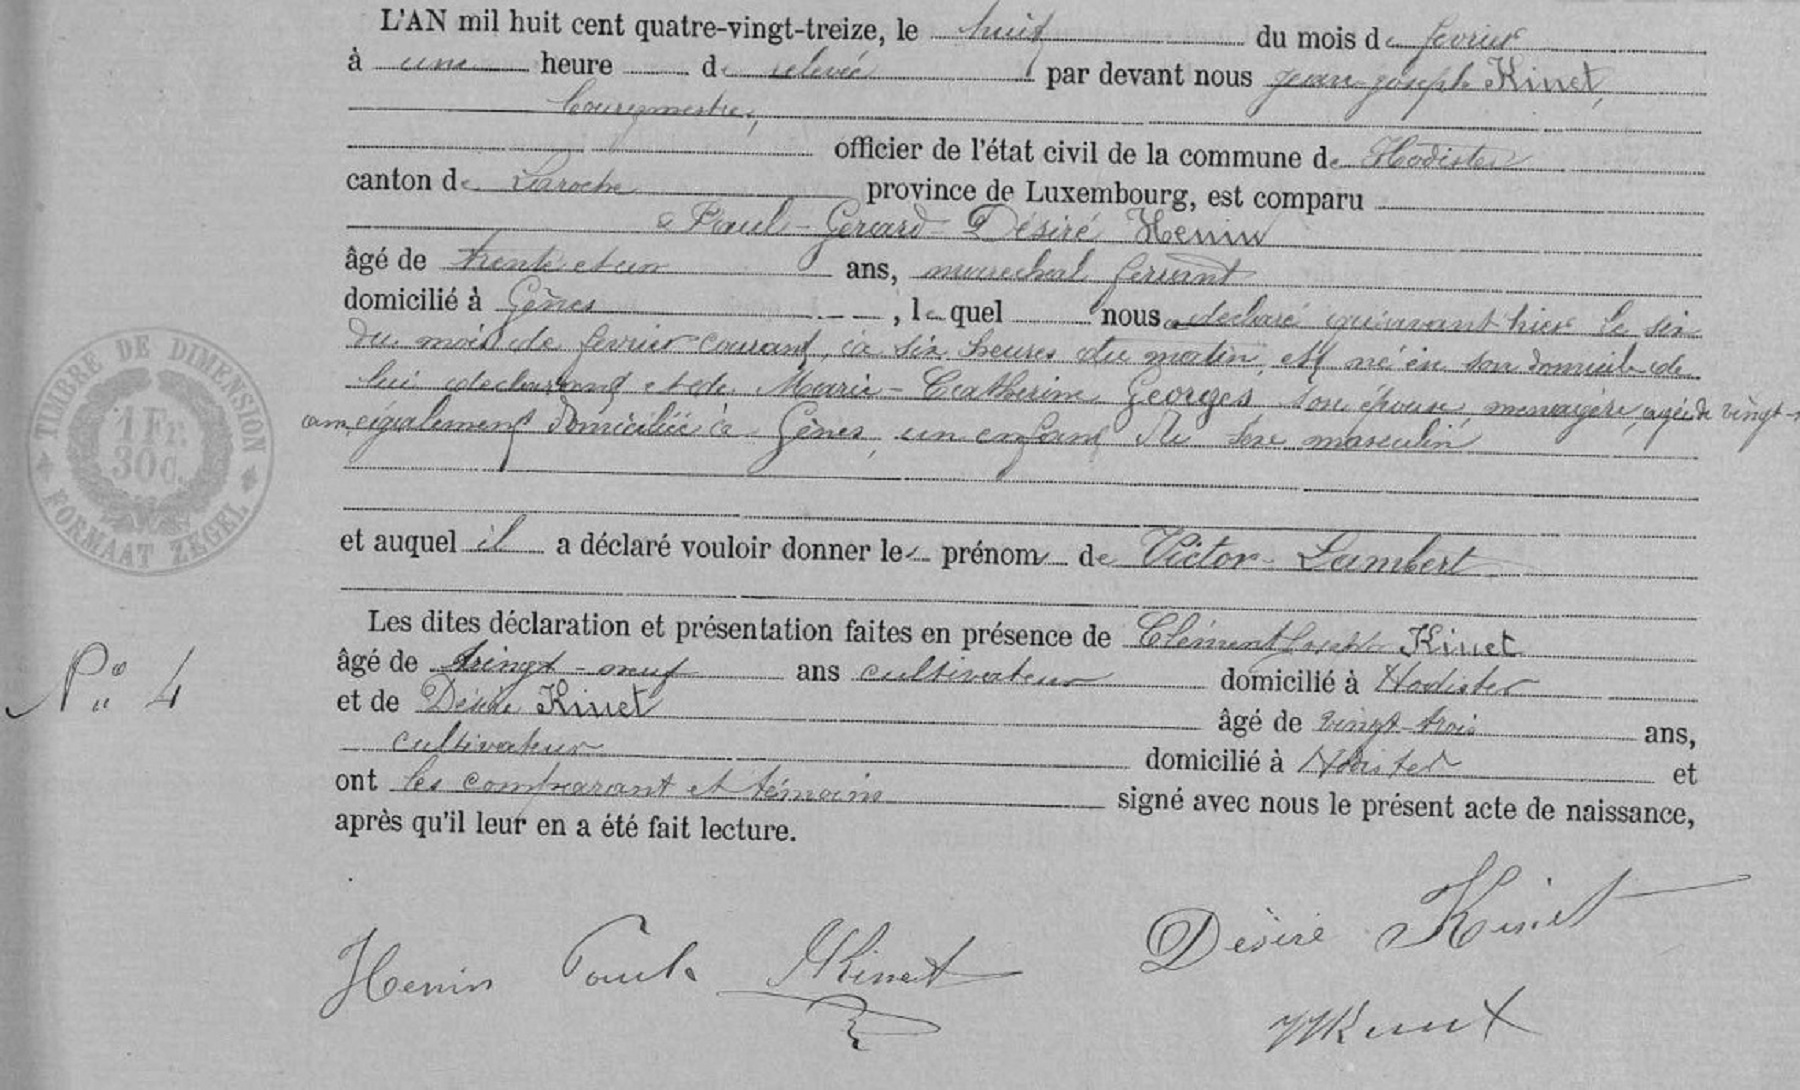 L'AN mil huit cent quatre-vingt-treize, le huit du mois de fevrier
à une heure de relevée par devant nous Jean Joseph Kinet,
bourgmestre,
officier de l'état civil de la commune de Hodister
canton de Laroche province de Luxembourg, est comparu
Paul-Gerard-Désiré Henin
âgé de trente et un ans, marechal ferrant
domicilié à Gênes , le quel nous a declaré qu'avant hier le six
du mois de fevrier courant, à six heures du matin, est né en son domicile de
lui declarant et de Marie-Catherine Georges son épouse, menagère, agée de vingt-
ans, également domiciliée à Gênes, un enfant du sexe masculin
et auquel il a déclaré vouloir donner les prénoms de Victor-Lambert
Les dites déclaration et présentation faites en présence de Clément Joseph Kinet
âgé de vingt-neuf ans cultivateur domicilié à Hodister
et de Désiré Kinet âgé de vingt-trois ans,
cultivateur domicilié à Hodister et
ont les comparant et témoins signé avec nous le présent acte de naissance,
après qu'il leur en a été fait lecture.
TIMBRE DE DIMENSION
1 Fr.
30 C.
FORMAAT ZEGEL
No 4
Henin Paul Kinet Désiré Kinet